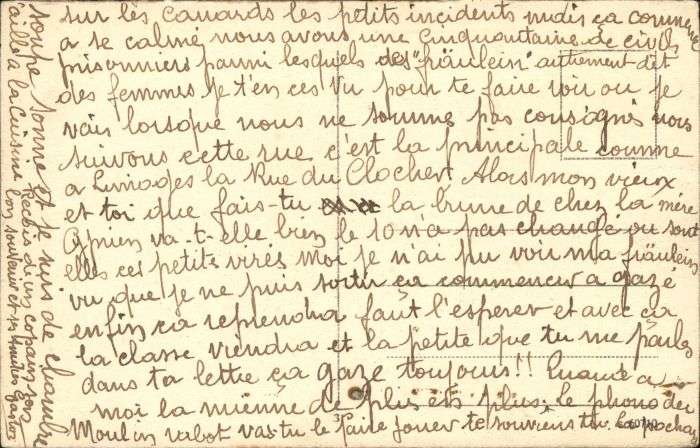 sur les canards les petits incidents mais ça comme
a se calmé nous avons une cinquantaine de civils
prisonniers parmi lesquels des "fräulein" autrement dit
des femmes je t'en ces vu pour te faire voir ou je
vais lorsque nous ne somme pas consignés nous
suivons cette rue c'est la principale comme
a Limoges la Rue du Clocher. Alors mon vieux
et toi que fais-tu la brune de chez la mère
va-t-elle bien le 10 n'a pas changé ou sont
elles ces petites virés Moi je n'ai pu voir ma fräulein
vu que je ne puis sortir ça commencer a gazé
enfin ça reprendra faut l'esperer et avec ça
la classe viendra et la petite que tu me parles
dans ta lettre ça gaze toujours!! Quand a
moi la mienne de plus en plus, le phono de
Moulin rabot vas-tu le faire jouer te souviens tu
soupe sonne et je suis de chambre
a la Cuisine Recois d'un copain son
bon souvenir et ses Amitiés